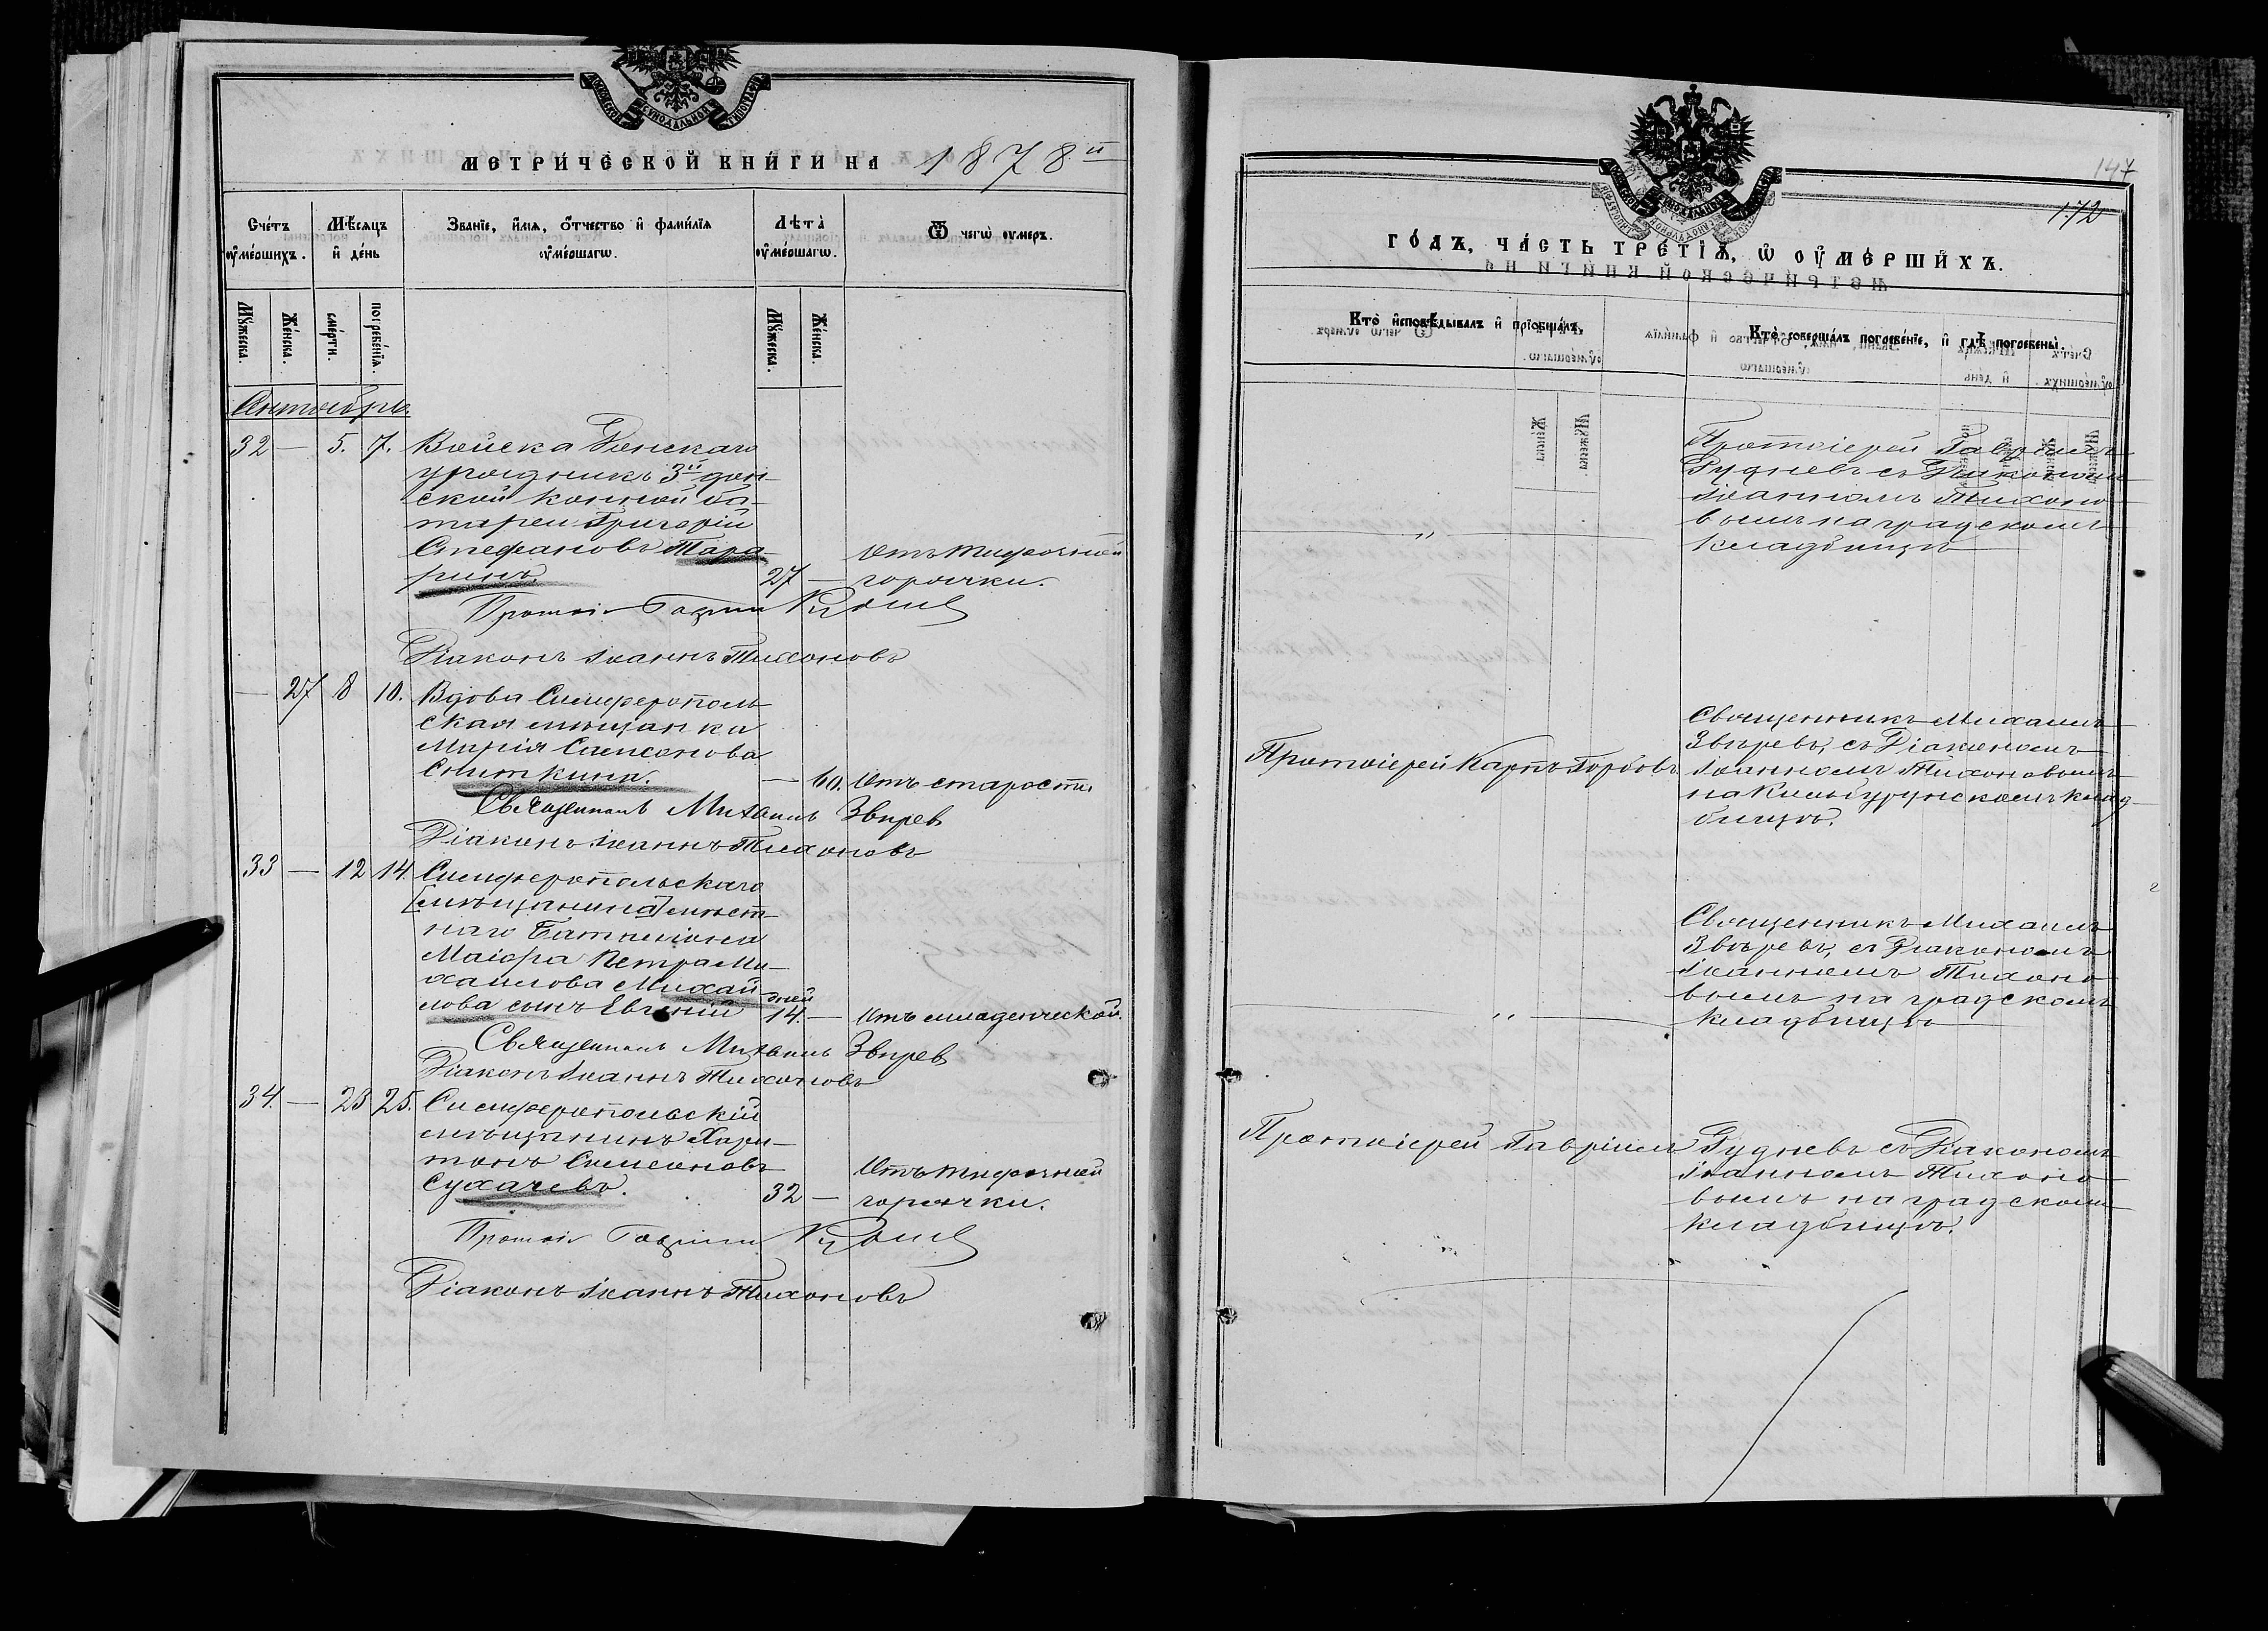 МЕТРИЧЕСКОЙ КНИГИ НА 1878й
Счетъ умершихъ.
Мѣсяцъ и день
Званіе, имя, отчество и фамилія умершагѡ.
Лѣта умершагѡ.
Ѿ чегѡ умеръ.
Мужеска.
Женска.
смерти.
погребенія.
Мужеска.
Женска.
Октябрь.
32 — 5. 7. Войска Донскаго
урядникъ 3й дон-
ской конной ба-
тареи Григорій
Стефановъ Тара-
ринъ 27 —
Отъ тифозной
горячки.
Діаконъ Іоаннъ Тихоновъ
— 27 8 10. Вдова Симферополь-
ская мѣщанка
Марія Симеонова
Сниткина. — 60. Отъ старости
Священникъ Михаилъ Звѣрев
Діаконъ Іоаннъ Тихоновъ
33 — 12 14. Симферопольскаго
[мѣщанина] мѣст-
наго Баталіона
Маіора Петра Ми-
хаилова Михай-
лова сынъ Евгеній дней 14. — Отъ младенческой.
Священникъ Михаилъ Звѣрев
Діаконъ Іоаннъ Тихоновъ
34. — 23 25. Симферопольскій
мѣщанинъ Хари-
тонъ Симеоновъ
Сухачевъ. 32 —
Отъ тифозной
горячки.
Діаконъ Іоаннъ Тихоновъ
147
172
ГОДЪ, ЧАСТЬ ТРЕТІЯ, Ѡ УМЕРШИХЪ.
Кто исповѣдывалъ и пріобщалъ.
Кто совершалъ погребеніе, и гдѣ погребены.
Протоіерей Гавріилъ
Рудневъ съ Діакономъ
Іоанномъ Тихоно-
вымъ на градскомъ
кладбищѣ
Протоіерей Карпъ Горбовъ
Священникъ Михаилъ
Звѣревъ, съ Діакономъ
Іоанномъ Тихоновымъ
на клад-
бищѣ.
Священникъ Михаилъ
Звѣревъ, съ Діакономъ
Іоанномъ Тихоно-
вымъ на градскомъ
кладбищѣ
Протоіерей Гавріилъ Рудневъ съ Діакономъ
Іоанномъ Тихоно-
вымъ на градскомъ
кладбищѣ.